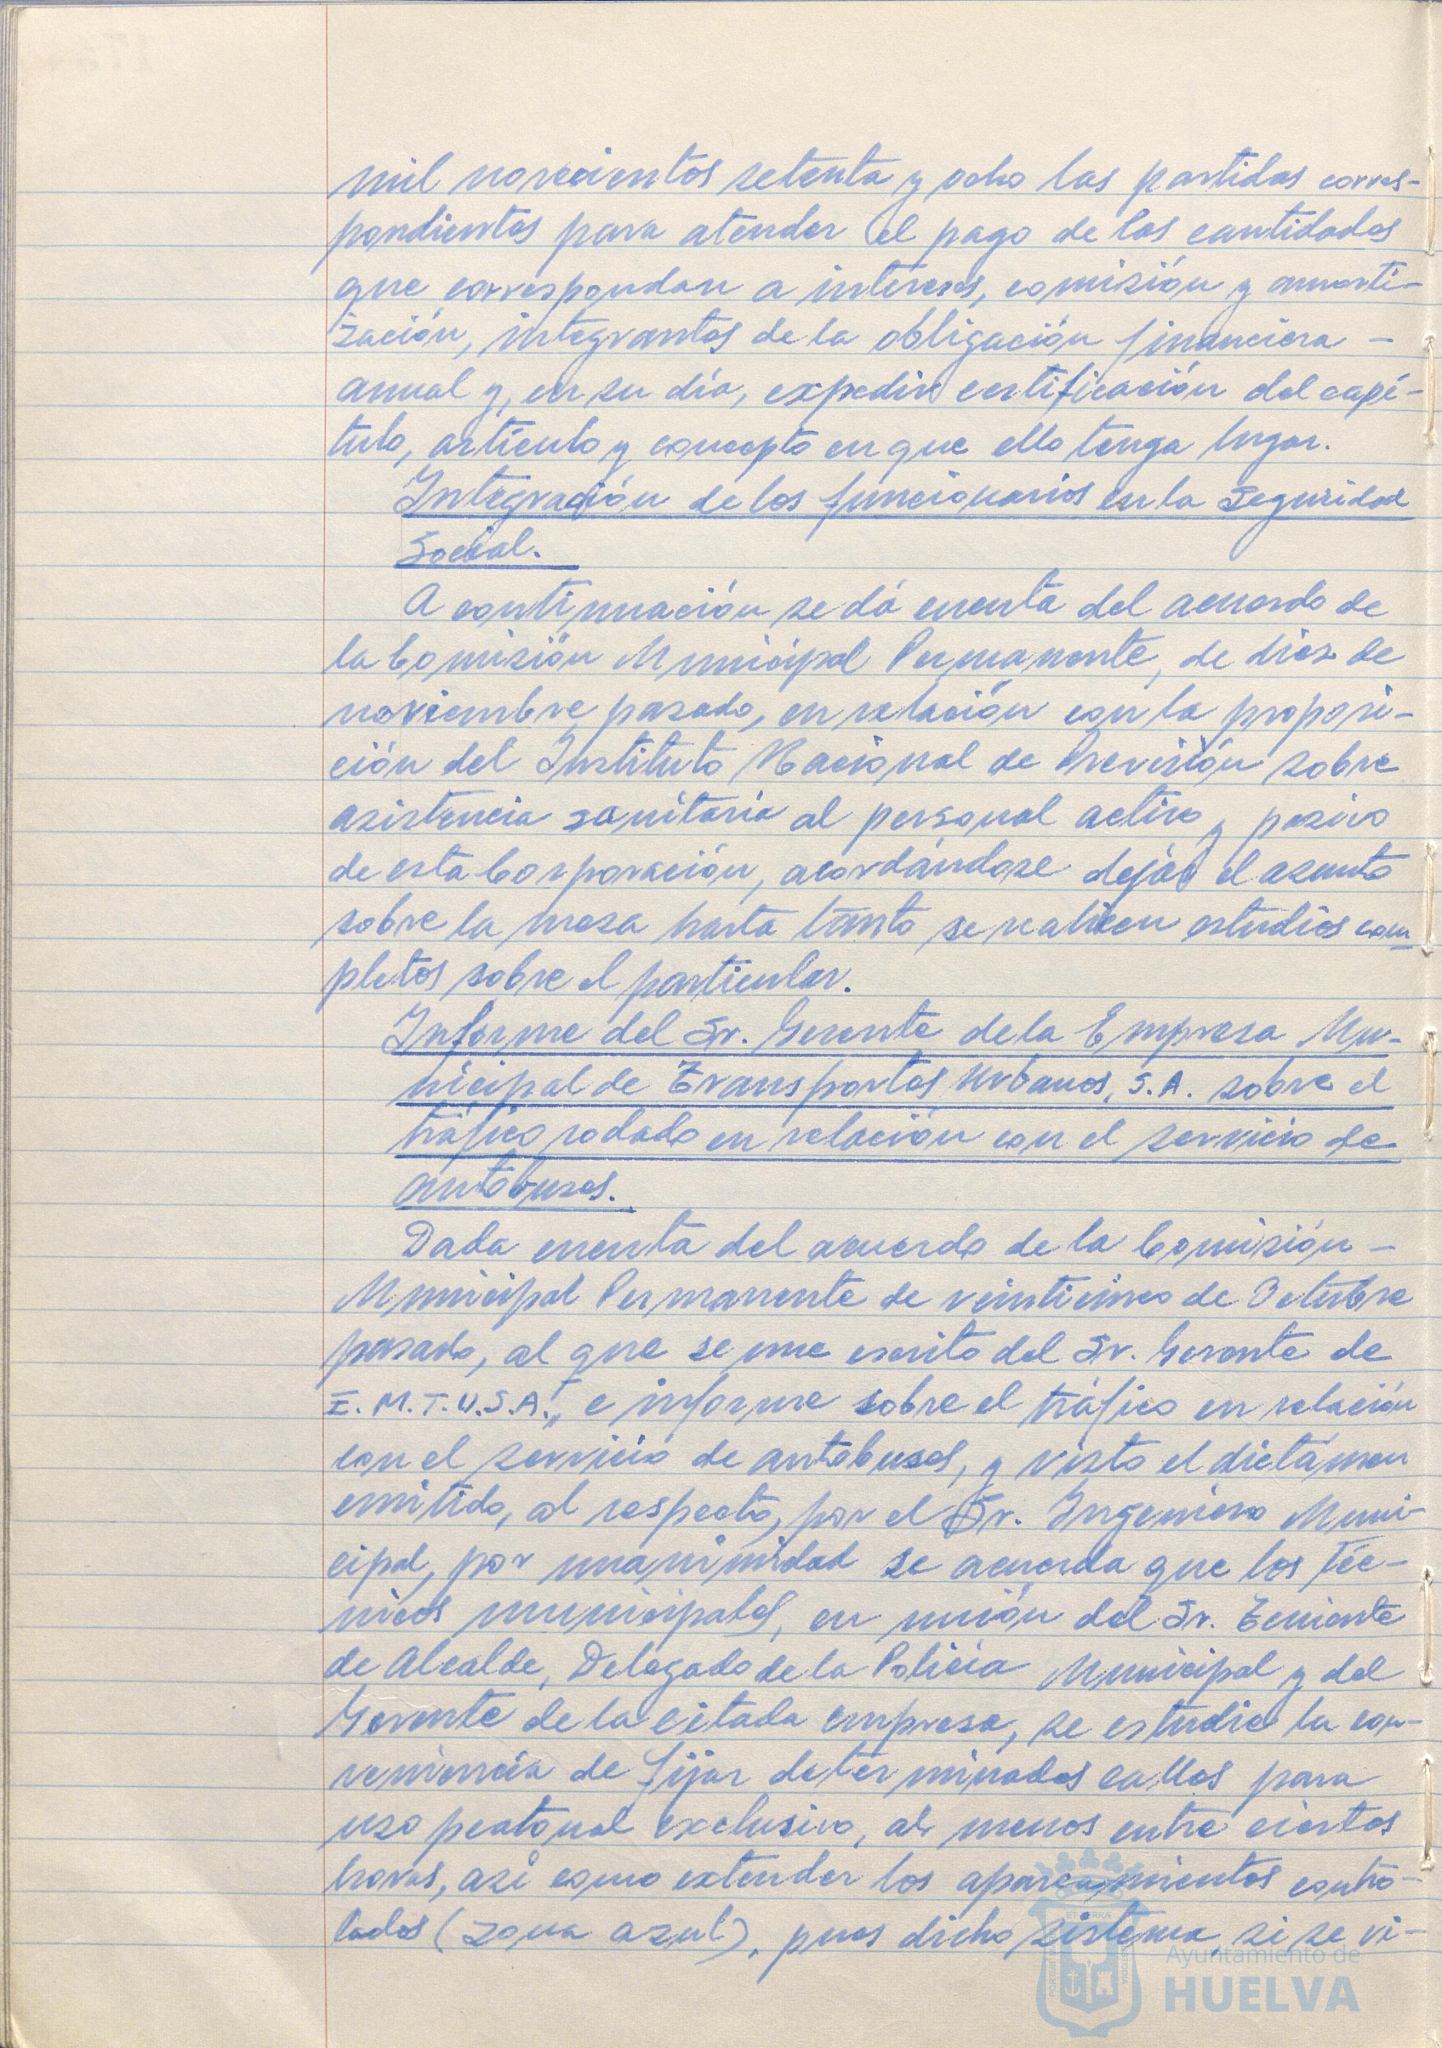 mil novecientos setenta y ocho las partidas corres-
pondientes para atender el pago de las cantidades
que correspondan a interes, comisión y amorti-
zación, integrantes de la obligación financiera -
anual y, en su día, expedir certificación del capí-
tulo, artículo y concepto en que ello tenga lugar.
Integración de los funcionarios en la Seguridad
Social.
A continuación se dá cuenta del acuerdo de
la Comisión Municipal Permanente, de diez de
noviembre pasado, en relación con la proposi-
ción del Instituto Nacional de Previsión sobre
asistencia sanitaria al personal activo y pasivo
de esta Corporación, acordándose dejar el asunto
sobre la mesa hasta tanto se realicen estudios com-
pletos sobre el particular.
Informe del Sr. Gerente de la Empresa Mu-
nicipal de Transportes Urbanos, S.A. sobre el
tráfico rodado en relación con el servicio de
autobuses.
Dada cuenta del acuerdo de la Comisión -
Municipal Permanente de veinticinco de Octubre
pasado, al que se une escrito del Sr. Gerente de
E.M.T.U.S.A., e informe sobre el tráfico en relación
con el servicio de autobuses, y visto el dictámen
emitido, al respecto, por el Sr. Ingeniero Muni-
cipal, por unanimidad se acuerda que los téc-
nicos municipales, en unión del Sr. Teniente
de Alcalde, Delegado de la Policía Municipal y del
Gerente de la citada empresa, se estudie la con-
veniencia de fijar determinadas calles para
uso peatonal exclusivo, al menos entre ciertas
horas, así como extender los aparcamientos contro-
lados (zona azul), pues dicho sistema si se vi-
Ayuntamiento de
HUELVA